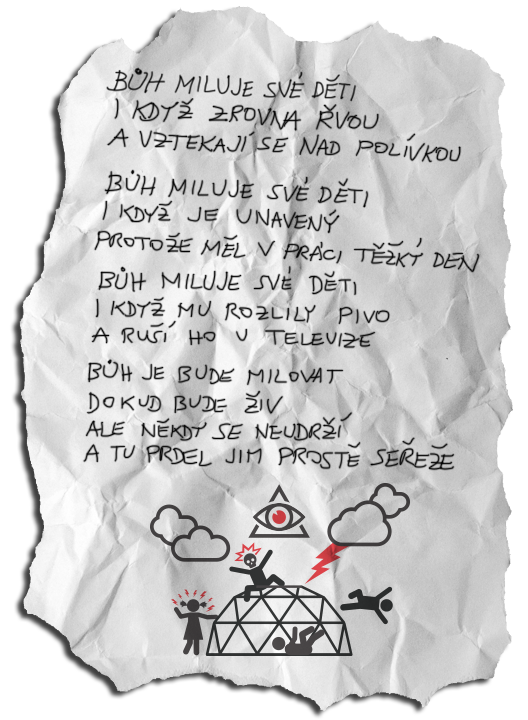 BŮH MILUJE SVÉ DĚTI
I KDYŽ ZROVNA ŘVOU
A VZTEKAJÍ SE NAD POLÍVKOU
BŮH MILUJE SVÉ DĚTI
I KDYŽ JE UNAVENÝ
PROTOŽE MĚL V PRÁCI TĚŽKÝ DEN
BŮH MILUJE SVÉ DĚTI
I KDYŽ MU ROZLILY PIVO
A RUŠÍ HO U TELEVIZE
BŮH JE BUDE MILOVAT
DOKUD BUDE ŽIV
ALE NĚKDY SE NEUDRŽÍ
A TU PRDEL JIM PROSTĚ SEŘEŽE